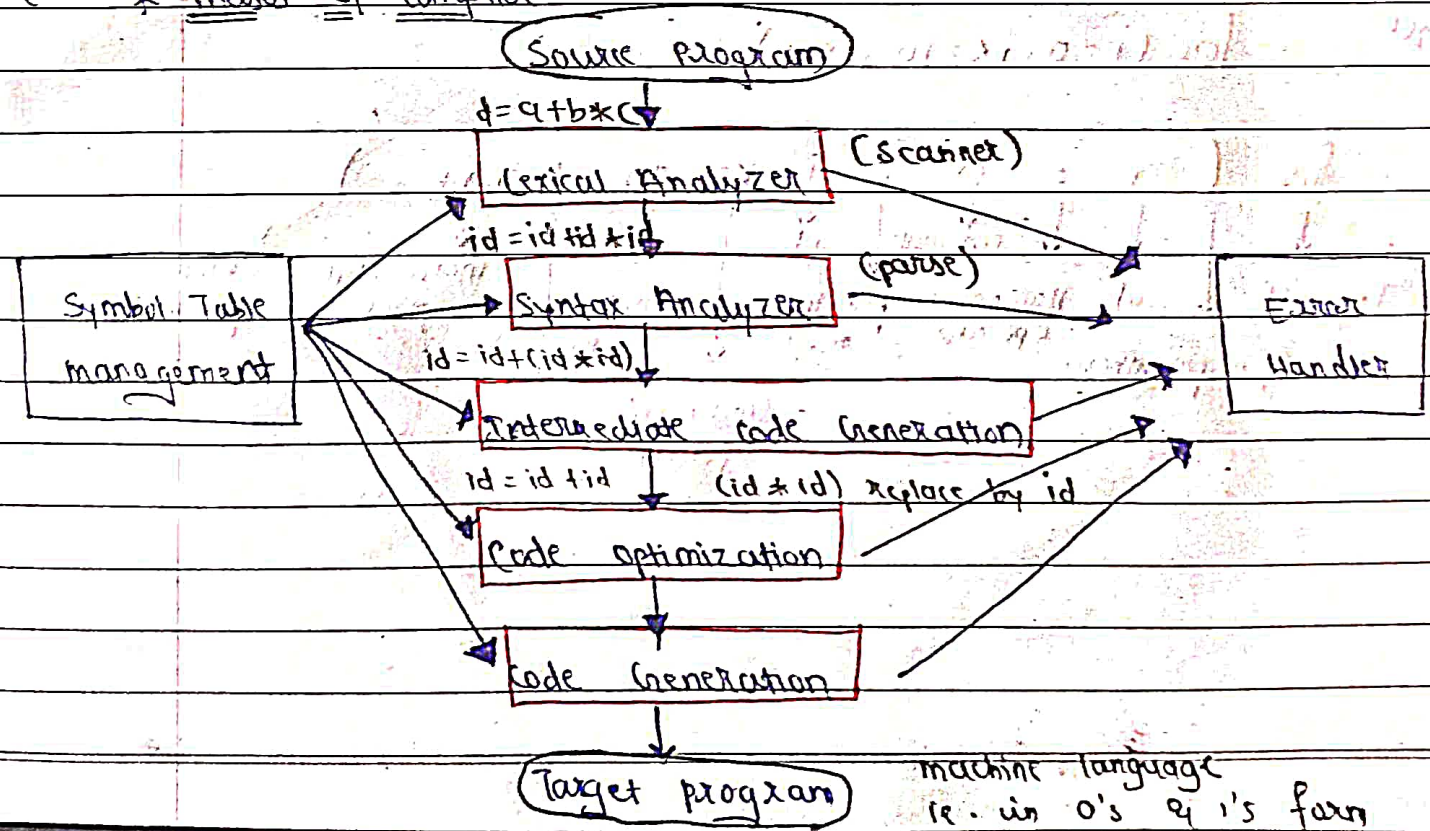 Source program
d=a+b*c
Lexical Analyzer
(scanner)
id=id+id*id
Syntax Analyzer
(parse)
Symbol Table
management
Error
Handler
id=id+(id*id)
Intermediate code Generation
id = id +id
(id*id) replace by id
Code optimization
Code Generation
Target program
machine language
ie. in 0's & 1's form